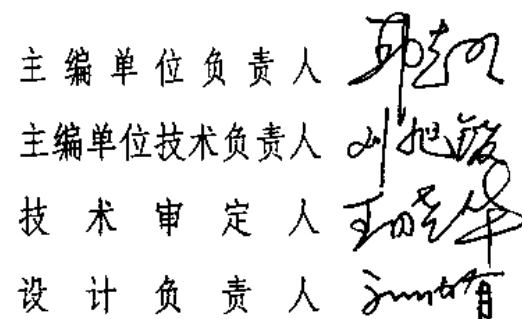 主编单位负责人
主编单位技术负责人
技术审定人 王晓华
设计负责人